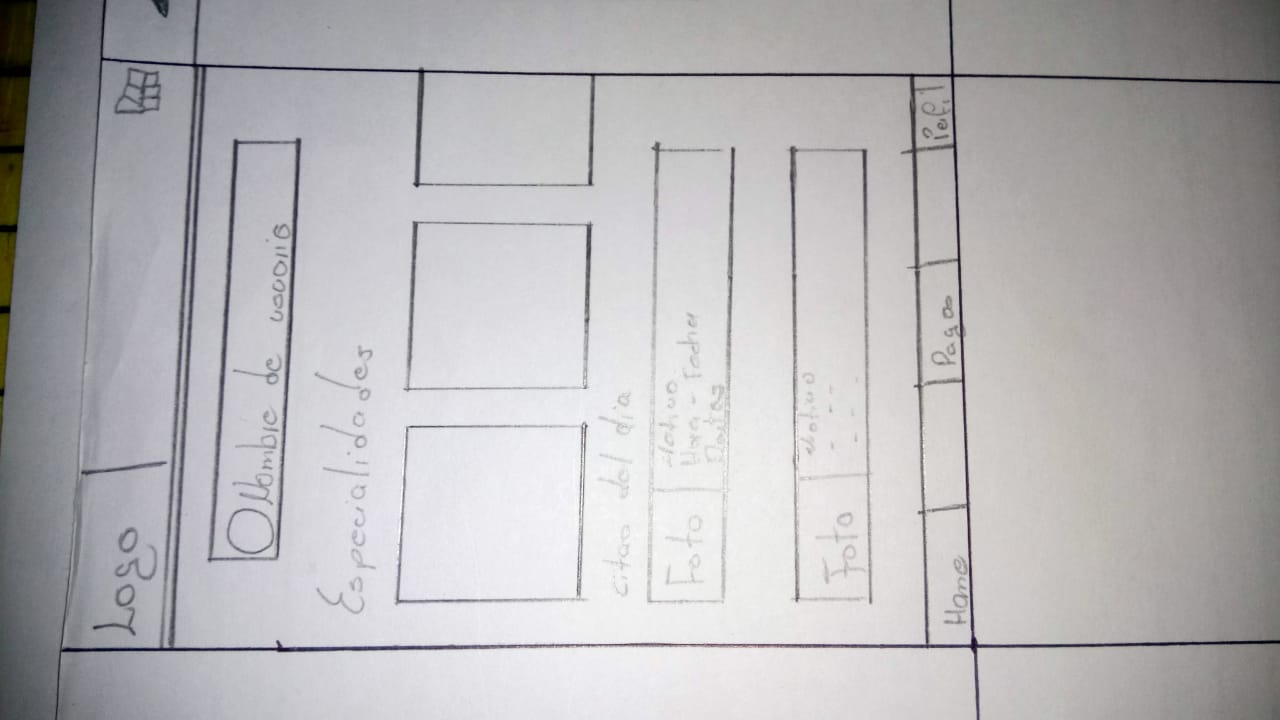 Logo
Nombre de usuario
Especialidades
citas del dia
Foto
Motivo
Hora - Fecha
Foto
Motivo
Home
Pagos
Perfil